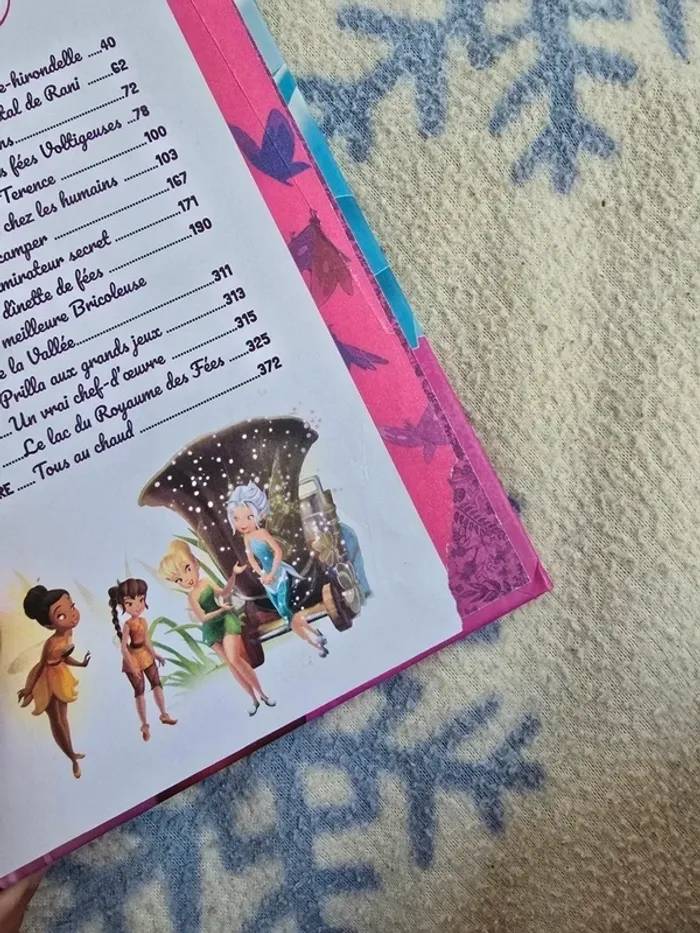 e-hirondelle ....40
tal de Rani ......62
ns..........................72
s fées Voltigeuses ..78
Terence ....................100
chez les humains ......103
camper ..........................167
mirateur secret ..............171
dînette de fées ................190
meilleure Bricoleuse
e la Vallée..............................311
Prilla aux grands jeux ............313
....Un vrai chef-d'œuvre ..............315
......Le lac du Royaume des Fées ....325
RE .....Tous au chaud ..........................372